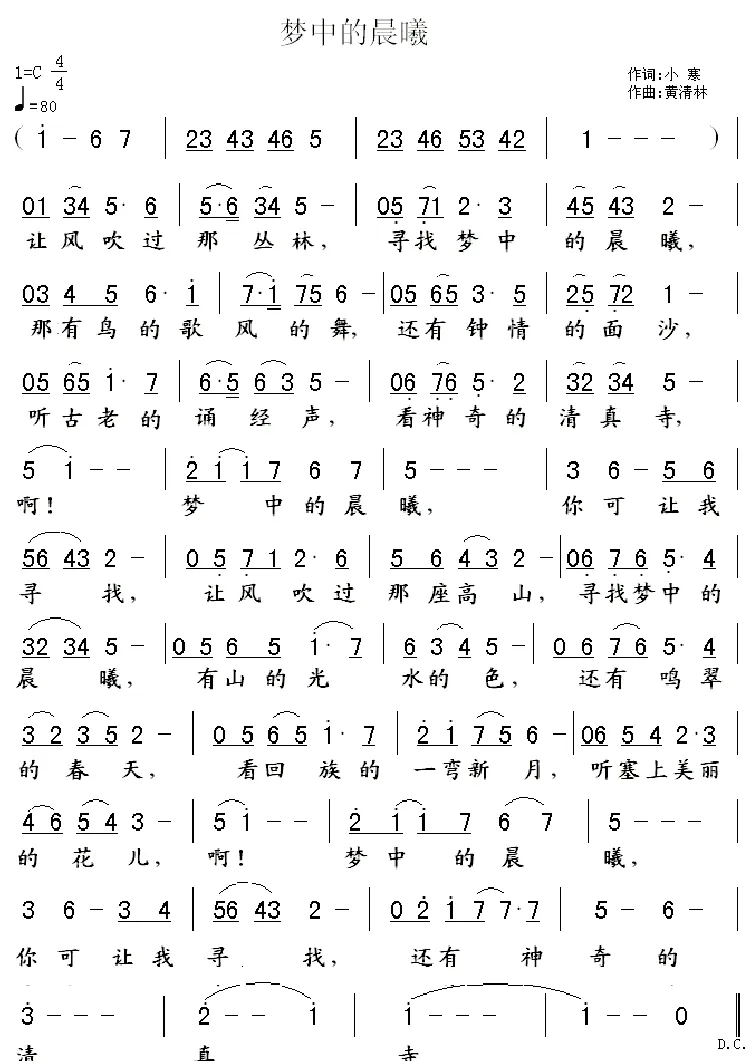 梦中的晨曦
1=C 4/4
作词:小 寒
♩=80
作曲:黄清林
( 1 - 6 7 | 23 43 46 5 | 23 46 53 42 | 1 - - - ) |
01 34 5· 6 | 5·6 34 5 - | 05 71 2· 3 | 45 43 2 - |
让风吹过那丛林，寻找梦中的晨曦，
03 4 5 6· 1 | 7·1 75 6 - | 05 65 3· 5 | 25 72 1 - |
那有鸟的歌风的舞，还有钟情的面沙，
05 65 1· 7 | 6·5 6 3 5 - | 06 76 5· 2 | 32 34 5 - |
听古老的诵经声，看神奇的清真寺，
5 1 - - | 2 1 1 7 6 7 | 5 - - - | 3 6 - 5 6 |
啊！梦中的晨曦，你可让我
56 43 2 - | 0 5 7 1 2· 6 | 5 6 4 3 2 - | 06 7 6 5· 4 |
寻找，让风吹过那座高山，寻找梦中的
32 34 5 - | 0 5 6 5 1· 7 | 6 3 4 5 - | 0 6 7 6 5· 4 |
晨曦，有山的光水的色，还有鸣翠
3 2 3 5 2 - | 0 5 6 5 1· 7 | 2 1 7 5 6 - | 06 5 4 2·3 |
的春天，看回族的一弯新月，听塞上美丽
4 6 5 4 3 - | 5 1 - - | 2 1 1 7 6 7 | 5 - - - |
的花儿，啊！梦中的晨曦，
3 6 - 3 4 | 56 43 2 - | 0 2 1 7 7·7 | 5 - 6 - |
你可让我寻找，还有神奇的
3 - - - | 2 - - 1 | 1 - - - | 1 - - 0 |
D.C.
清真寺